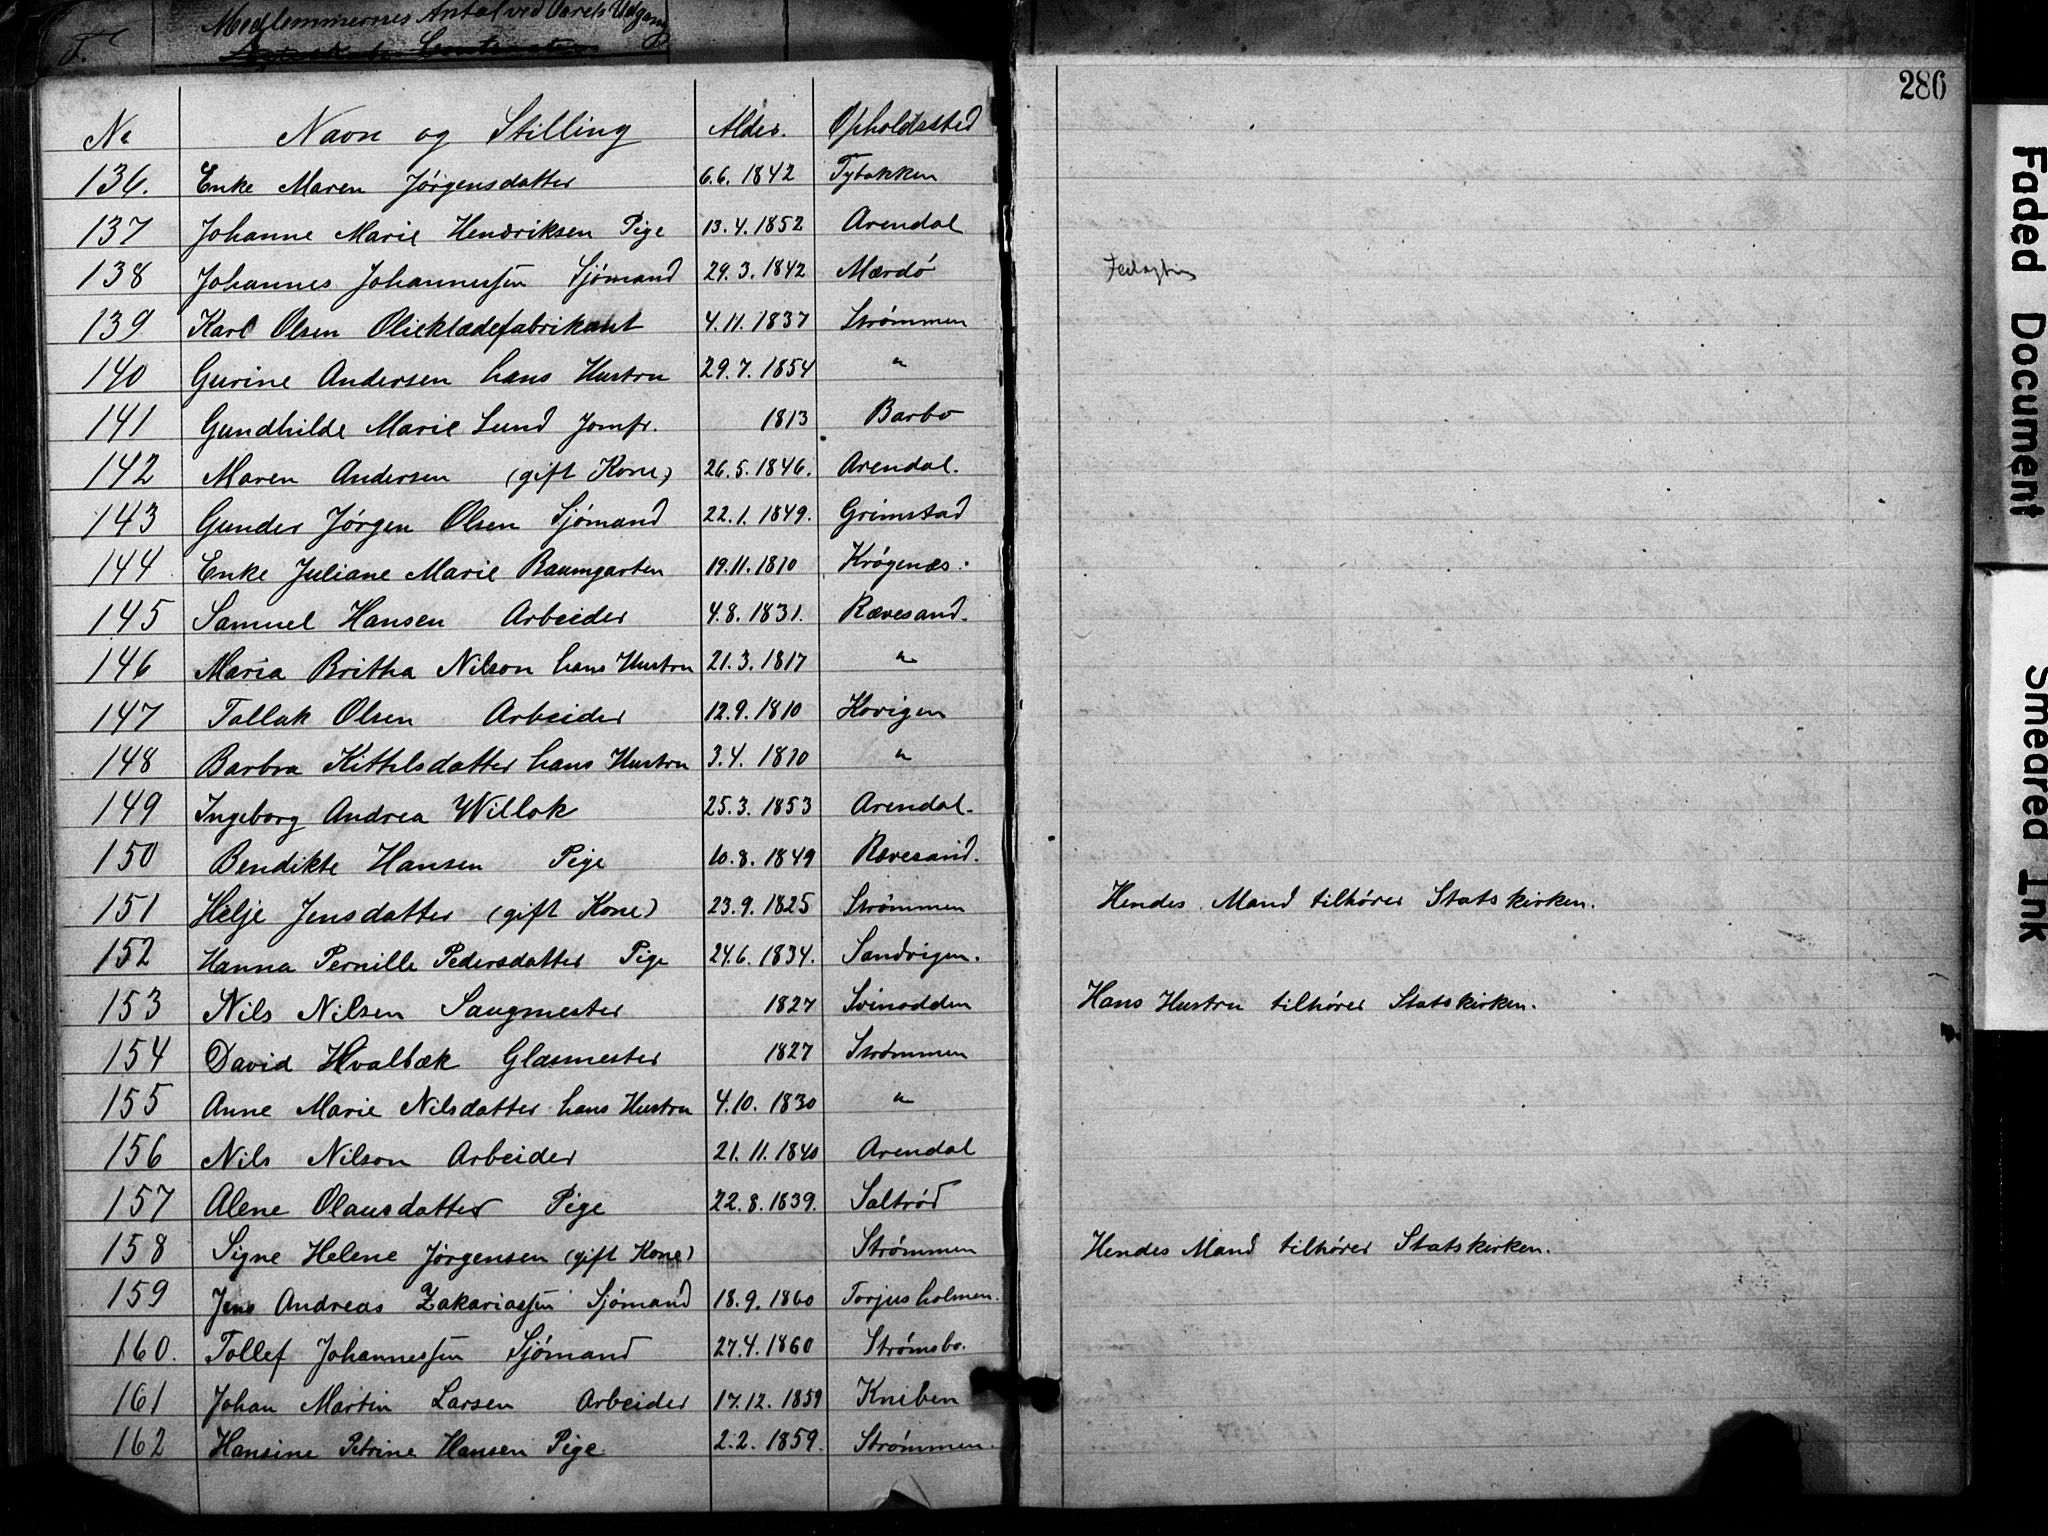 F. Medlemmernes Antal ved Aarets Udgang
286
No Navn og Stilling Alder. Opholdssted
136. Enke Maren Jørgensdatter 6.6. 1842 Tybakken
137 Johanne Marie Hendriksen Pige 13.4.1852 Arendal
138 Johannes Johannessen Sjømand 29.3.1842 Mærdø
139 Karl Olsen Olieklædefabrikant 4.11.1837 Strømmen
140 Gurine Andersen hans Hustru 29.7.1854 "
141 Gundhilde Marie Lund Jomfr. 1813 Barbo
142 Maren Andersen (gift Kone) 26.5.1846. Arendal.
143 Gunder Jørgen Olsen Sjømand 22.1.1849. Grimstad
144 Enke Juliane Marie Baumgarten 19.11.1810 Krøgenæs.
145 Samuel Hansen Arbeider 4.8.1831. Rævesand.
146 Maria Britha Nilson hans Hustru 21.3.1817 "
147 Tallak Olsen Arbeider 12.9.1810 Hovigen
148 Barbra Kittilsdatter hans Hustru 3.4. 1810 "
149 Ingeborg Andrea Willok 25.3.1853 Arendal.
150 Bendikte Hansen Pige 10.8.1849 Rævesand.
151 Helje Jensdatter (gift Kone) 23.9.1825 Strømmen Hendes Mand tilhører Statskirken.
152 Hanna Pernille Pedersdatter Pige 24.6.1834. Sandvigen.
153 Nils Nilsen Saugmester 1827 Svinodden Hans Hustru tilhører Statskirken.
154 David Hvalbæk Glasmester 1827 Strømmen
155 Anne Marie Nilsdatter hans Hustru 4.10. 1830 "
156 Nils Nilson Arbeider 21.11.1840 Arendal
157 Alene Olausdatter Pige 22.8.1839. Saltrød
158 Signe Helene Jørgensen (gift Kone) Strømmen Hendes Mand tilhører Statskirken.
159 Jens Andreas Zakariassen Sjømand 18.9.1860 Torjusholmen.
160. Tollef Johannessen Sjømand 27.4.1860 Strømsbo.
161 Johan Martin Larsen Arbeider 17.12.1859 Kniben
162 Hansine Petrine Hansen Pige 2.2.1859. Strømmen.
Faded Document
Smeared Ink